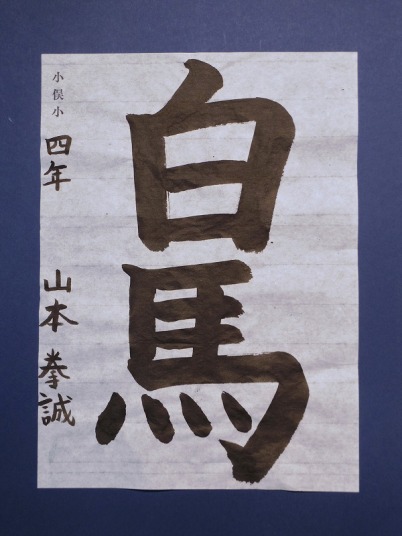 白馬
小俣小
四年 山本拳誠